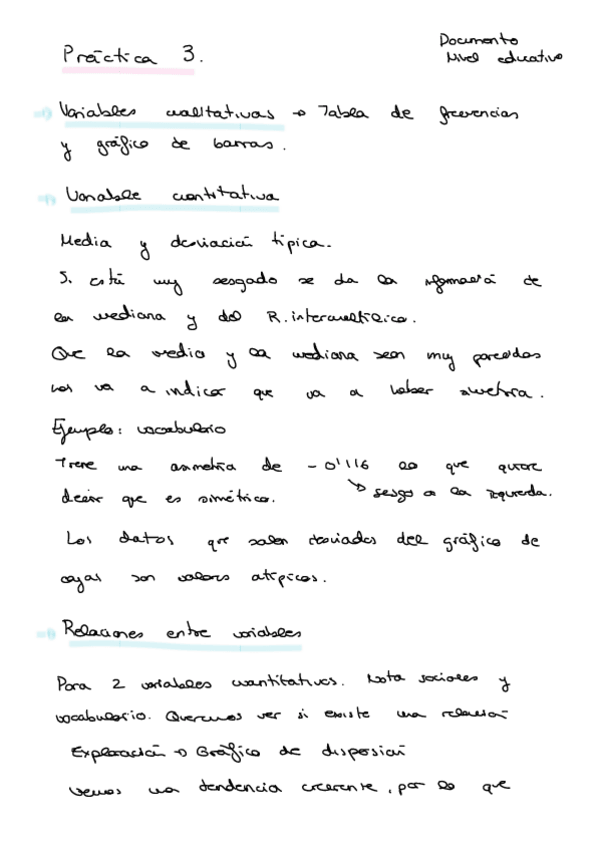 Documento
Práctica 3.
Nivel educativo
Variables cualitativas → Tabla de frecuencias
y gráfico de barras.
Variable cuantitativa
Media y desviación típica.
Si está muy sesgado se da la información de
la mediana y del R. intercuartílico.
Que la media y la mediana sean muy parecidas
nos va a indicar que va a haber simetría.
Ejemplo: vocabulario
Tiene una asimetría de - 0'116 lo que quiere
decir que es simétrico. ↘ sesgo a la izquierda.
Los datos que salen desviados del gráfico de
cajas son valores atípicos.
Relaciones entre variables
Para 2 variables cuantitativas. Nota sociales y
vocabulario. Queremos ver si existe una relación
Exploración → Gráfico de dispersión
Vemos una tendencia creciente, por lo que